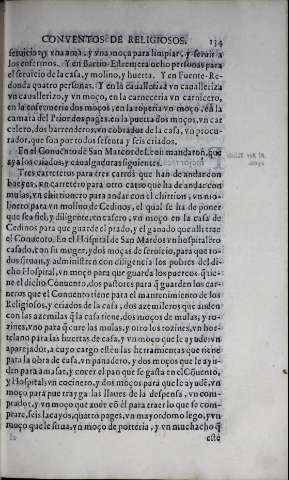 CONVENTOS DE RELIGIOSOS. 134
seruicio, y vna ama, y vna moça para limpiar, y seruir a
los enfermos. Y en Barrio-Estremera ocho personas para
el seruicio de la casa, y molino, y huerta. Y en Fuente-Re-
donda quatro personas. Y en la caualleriza vn caualleriza
vn cauallerizo, y vn moço, en la carneceria vn carnicero,
en la enfermeria dos moços, en la roperia vn moço, en la
camara del Prior dos pages, en la puerta dos moços, vn car
celero, dos barrenderos, vn cobrador de la casa, vn procu-
rador, que son por todos sesenta y seis criados.
En el Conuento de San Marcos de Leon mandaron, que
aya los criados, y caualgaduras siguientes.
Tres carreteros para tres carros que han de andar con
bueyes, vn carretero para otro carro que ha de andar con
mulas, vn chirrionero para andar con el chirrion, vn mo-
linero para vn molino de Cedinos, el qual se ha de poner
que sea fiel, y diligente, en casero, vn moço en la casa de
Cedinos para que guarde el prado, y el ganado que alli trae
el Conuento. En el Hospital de San Marcos vn hospitalero
casado, con su muger, y dos moças de seruicio, para que to-
dos siruan, y administren con diligencia los pobres del di-
cho Hospital, vn moço para que guarde los puercos q̃ tie-
ne el dicho Conuento, dos pastores para q̃ guarden los car-
neros que el Conuento tiene para el mantenimiento de los
Religiosos, y criados de la casa, dos azemileros que anden
con las azemilas q̃ la casa tiene, dos moços de mulas, y ro-
zines, vno para q̃ cure las mulas, y otro los rozines, vn hor-
telano para las huertas de casa, y vn moço que le ayude, vn
aparejador, a cuyo cargo estè las herramientas que tiene
para la obra de casa, vn panadero, y dos moços que le ayu-
den para amasar, y cocer el pan que se gasta en el Cõuento,
y Hospital, vn cocinero, y dos moços para que le ayudẽ, vn
moço para que trayga las llaues de la despensa, vn com-
prador, y vn moço que ande cõ el para traer lo que se com-
prare, seis lacayos, quatro pages, vn mayordomo lego, y vn
moço que le sirua, vn moço de porteria, y vn muchacho q̃
estè